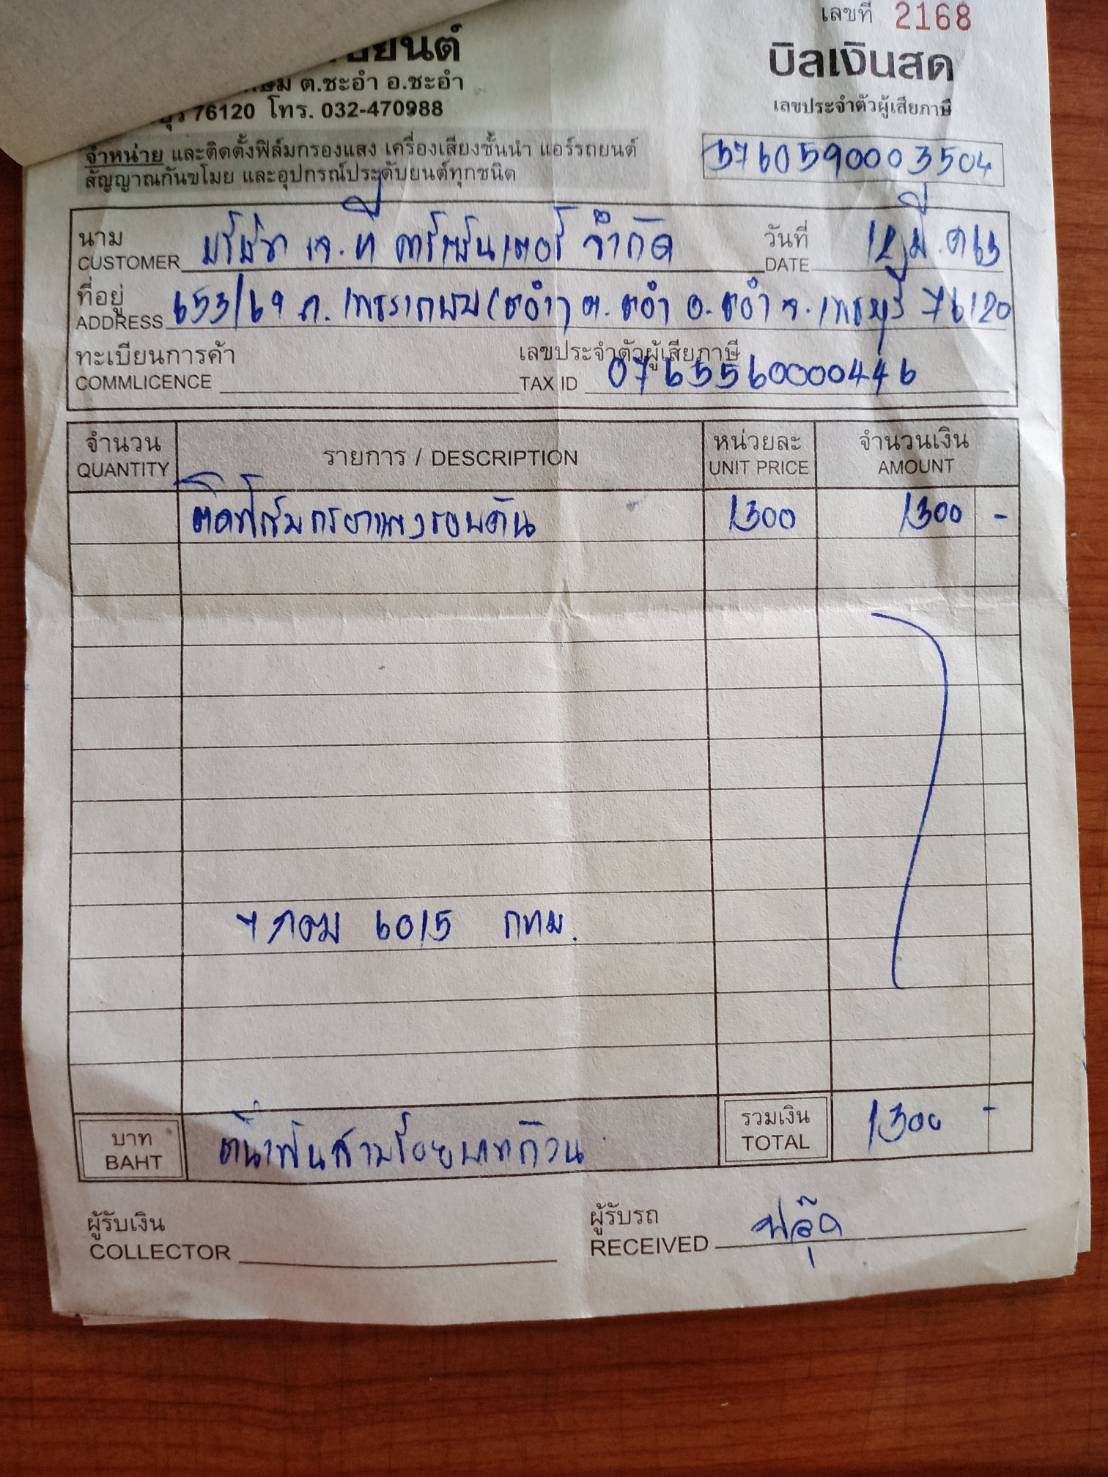 เลขที่ 2168
ยนต์
บิลเงินสด
ต.ชะอำ อ.ชะอำ
76120 โทร. 032-470988
เลขประจำตัวผู้เสียภาษี
3760590003504
จำหน่าย และติดตั้งฟิล์มกรองแสง เครื่องเสียงชั้นนำ แอร์รถยนต์
สัญญาณกันขโมย และอุปกรณ์ประดับยนต์ทุกชนิด
นาม บริษัท เจ.ที คาร์เซ็นเตอร์ จำกัด วันที่ 12 มี.ค 63
CUSTOMER DATE
ที่อยู่ 653/69 ถ. เพชรเกษม (ชะอำ) ต. ชะอำ อ. ชะอำ จ. เพชรบุรี 76120
ADDRESS
ทะเบียนการค้า เลขประจำตัวผู้เสียภาษี
COMMLICENCE TAX ID 0765560000446
จำนวน รายการ / DESCRIPTION หน่วยละ จำนวนเงิน
QUANTITY UNIT PRICE AMOUNT
ติดฟิล์มกรองแสงรอบคัน 1300 1300 -
6015 กทม.
บาท หนึ่งพันสามร้อยบาทถ้วน รวมเงิน 1300 -
BAHT TOTAL
ผู้รับเงิน ผู้รับรถ
COLLECTOR RECEIVED